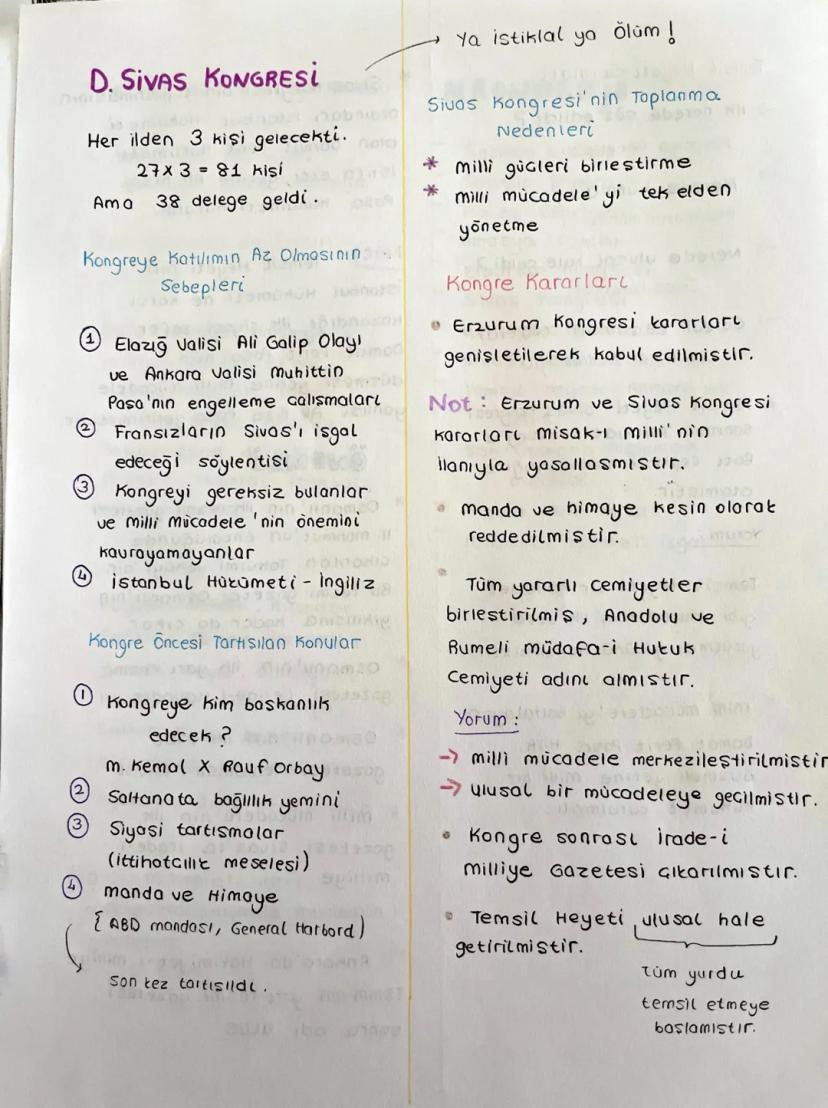 D. SİVAS KONGRESİ
Her ilden 3 kişi gelecekti.
27 x 3 = 81 kişi
Ama 38 delege geldi.
Kongreye Katılımın Az Olmasının
Sebepleri
① Elazığ Valisi Ali Galip Olayı
ve Ankara Valisi Muhittin
Paşa'nın engelleme çalışmaları
② Fransızların Sivas'ı işgal
edeceği söylentisi
③ Kongreyi gereksiz bulanlar
ve Milli Mücadele'nin önemini
kavrayamayanlar
④ İstanbul Hükümeti - İngiliz
Kongre Öncesi Tartışılan Konular
① Kongreye kim başkanlık
edecek?
M. Kemal X Rauf Orbay
② Saltanata bağlılık yemini
③ Siyasi tartışmalar
(ittihatcılık meselesi)
④ Manda ve Himaye
{ ABD mandası, General Harbord )
Son kez tartışıldı.
→ Ya istiklal ya Ölüm!
Sivas Kongresi'nin Toplanma
Nedenleri
* Milli güçleri birleştirme
* Milli mücadele'yi tek elden
yönetme
Kongre Kararları
• Erzurum Kongresi kararları
genişletilerek kabul edilmiştir.
Not : Erzurum ve Sivas Kongresi
kararları Misak-ı Milli'nin
ilanıyla yasallaşmıştır.
• Manda ve himaye kesin olarak
reddedilmiştir.
• Tüm yararlı cemiyetler
birleştirilmiş, Anadolu ve
Rumeli müdafa-i Hukuk
Cemiyeti adını almıştır.
Yorum :
→ Milli mücadele merkezileştirilmiştir
→ Ulusal bir mücadeleye geçilmiştir.
• Kongre sonrası İrade-i
Milliye Gazetesi çıkarılmıştır.
• Temsil Heyeti ulusal hale
getirilmiştir.
Tüm yurdu
temsil etmeye
başlamıştır.